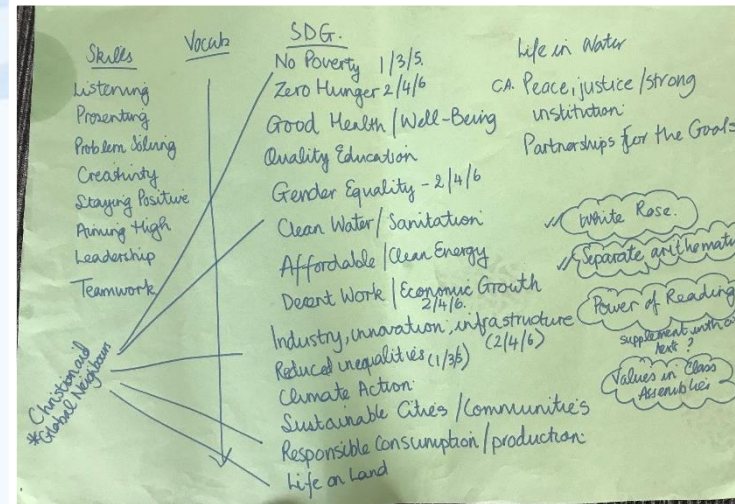 Skills
Listening
Presenting
Problem Solving
Creativity
Staying Positive
Aiming High
Leadership
Teamwork
Christian aid
*Global Neighbours
Vocab
SDG.
No Poverty 1/3/5.
Zero Hunger 2/4/6
Good Health / Well-Being
Quality Education
Gender Equality - 2/4/6
Clean Water / Sanitation
Affordable / Clean Energy
Decent Work / Economic Growth
2/4/6.
Industry, innovation, infrastructure
(2/4/6)
Reduced inequalities (1/3/5)
Climate Action
Sustainable Cities / Communities
Responsible Consumption / production
Life on Land
Life in Water
CA. Peace, justice / strong
institution
Partnerships for the Goals
White Rose.
Separate
Power of Reading
supplement with
text?
Values in Class
Assemblies